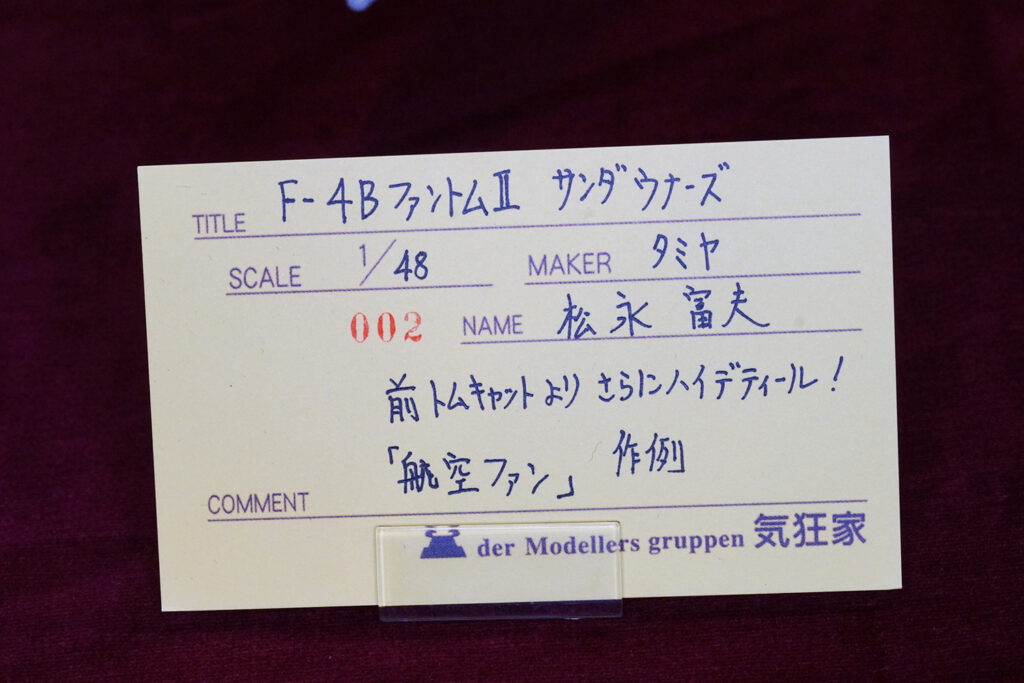 TITLE F-4BファントムⅡ サンダウナーズ
SCALE 1/48 MAKER タミヤ
002 NAME 松永 富夫
前トムキャットより さらにハイデティール!
「航空ファン」 作例
COMMENT
der Modellers gruppen 気狂家